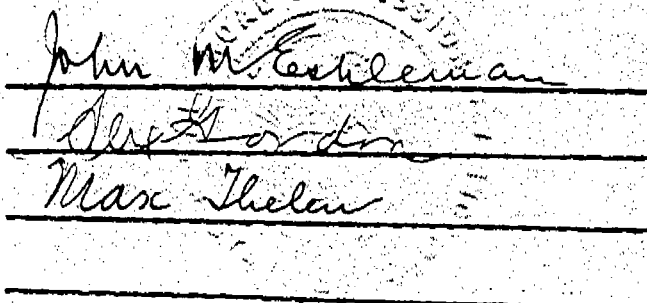 John M. Eshleman
Alex Gordon
Max Thelen